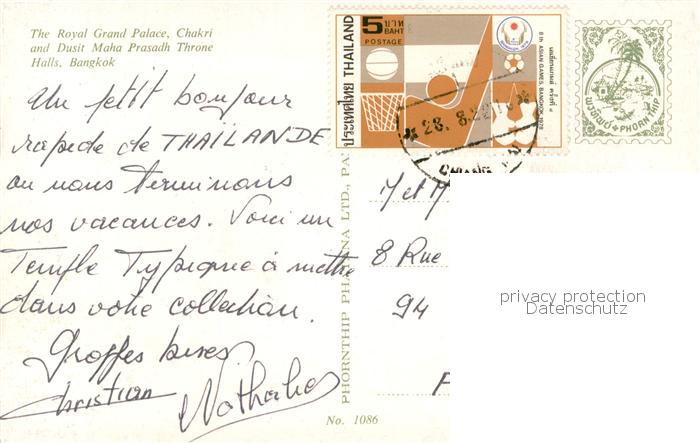 The Royal Grand Palace, Chakri
and Dusit Maha Prasadh Throne
Halls, Bangkok
Un petit bonjour
rapide de THAILANDE
ou nous terminons
nos vacances. Voici un
Temple Typique à mettre
dans votre collection.
Grosses bises
Christian Nathalie
PHORNTHIP PHATANA LTD., PA
No. 1086
ประเทศไทย THAILAND
5 บาท
BAHT
POSTAGE
8 th ASIAN GAMES, BANGKOK 1978
28. 8.
CHIANG
พรทิพย์ PHORN THIP
M et M
8 Rue
94
F
privacy protection
Datenschutz